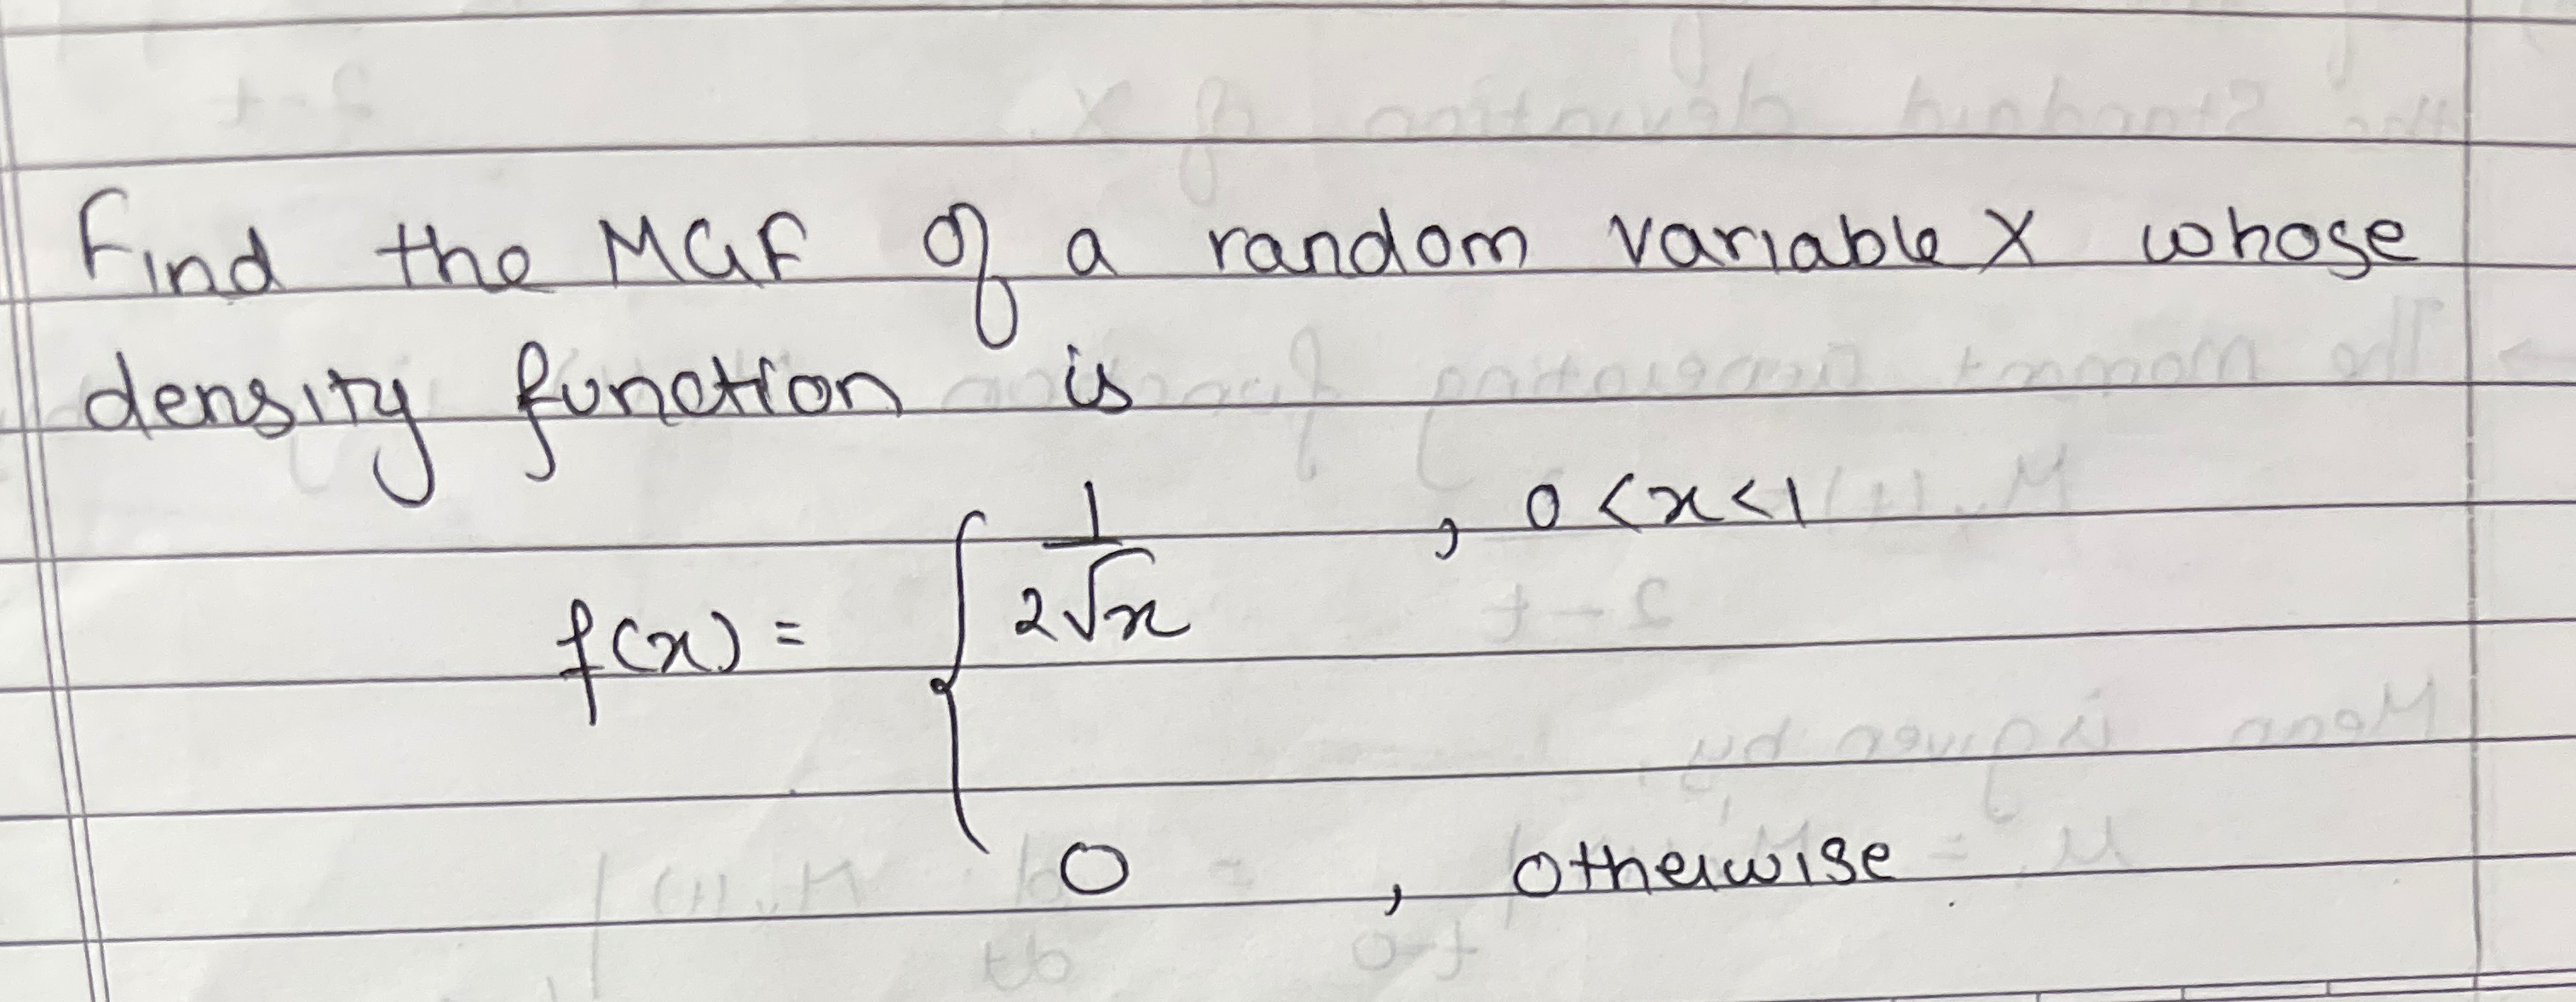 Find the MGF of a random variable X whose
density function is
f(x) = { 1/(2√x) , 0 < x < 1
0 , otherwise